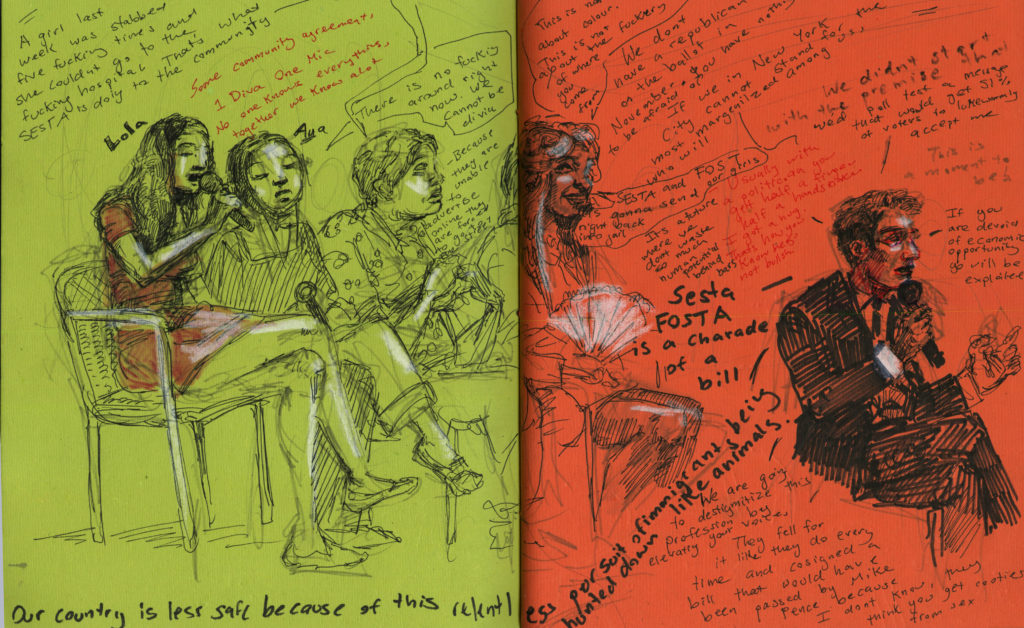 A girl last
week was stabbed
five fucking times and
she couldnt go to the
fucking hospital. That's what
SESTA is doig to the community
Some community agreement,
1 Diva One Mic
No one knows everything,
together we know alot
Lola
Aya
There is no fuckig
around right
now. We
cannot be
divia
Because
they are
unable
to
advertise
online they
are
This is no
about colour.
This is not
about
of where the fuckery
come
from
We dont
have a republican
on the ballit in
November. You have nothing
to be afraid of
If we in New York
City cannot stand for,
who will the
most marginilized among
us
SESTA and FOSTA
is gonna send our girls
right back
into jail
Its a future
where we
dont waste
so much
human
potential
behind
bars
Usually with
a politician you
get half a finger
half a handshake
I got a hug.
Thats how you
know hes
not bullsh
We didnt start
with the premise that
wed poll test a message
that would get 51%
of voters to lukewarmly
accept me
This is
a moment to
be a
If you
are devoid
of economic
opportunity
yo will be
exploited
Sesta
FOSTA
is a charade
of a
bill
Our country is less safe because of this relentl
ess porsuit of immigrants beig
hunted down like animals.
We are goig
to destigmitize this
profession by
elevatig your voices,
They fell for
it like they do every
time and cosigned a
bill that would have
been passed by Mike
Pence because
I dont know, they
think you get cooties
from sex